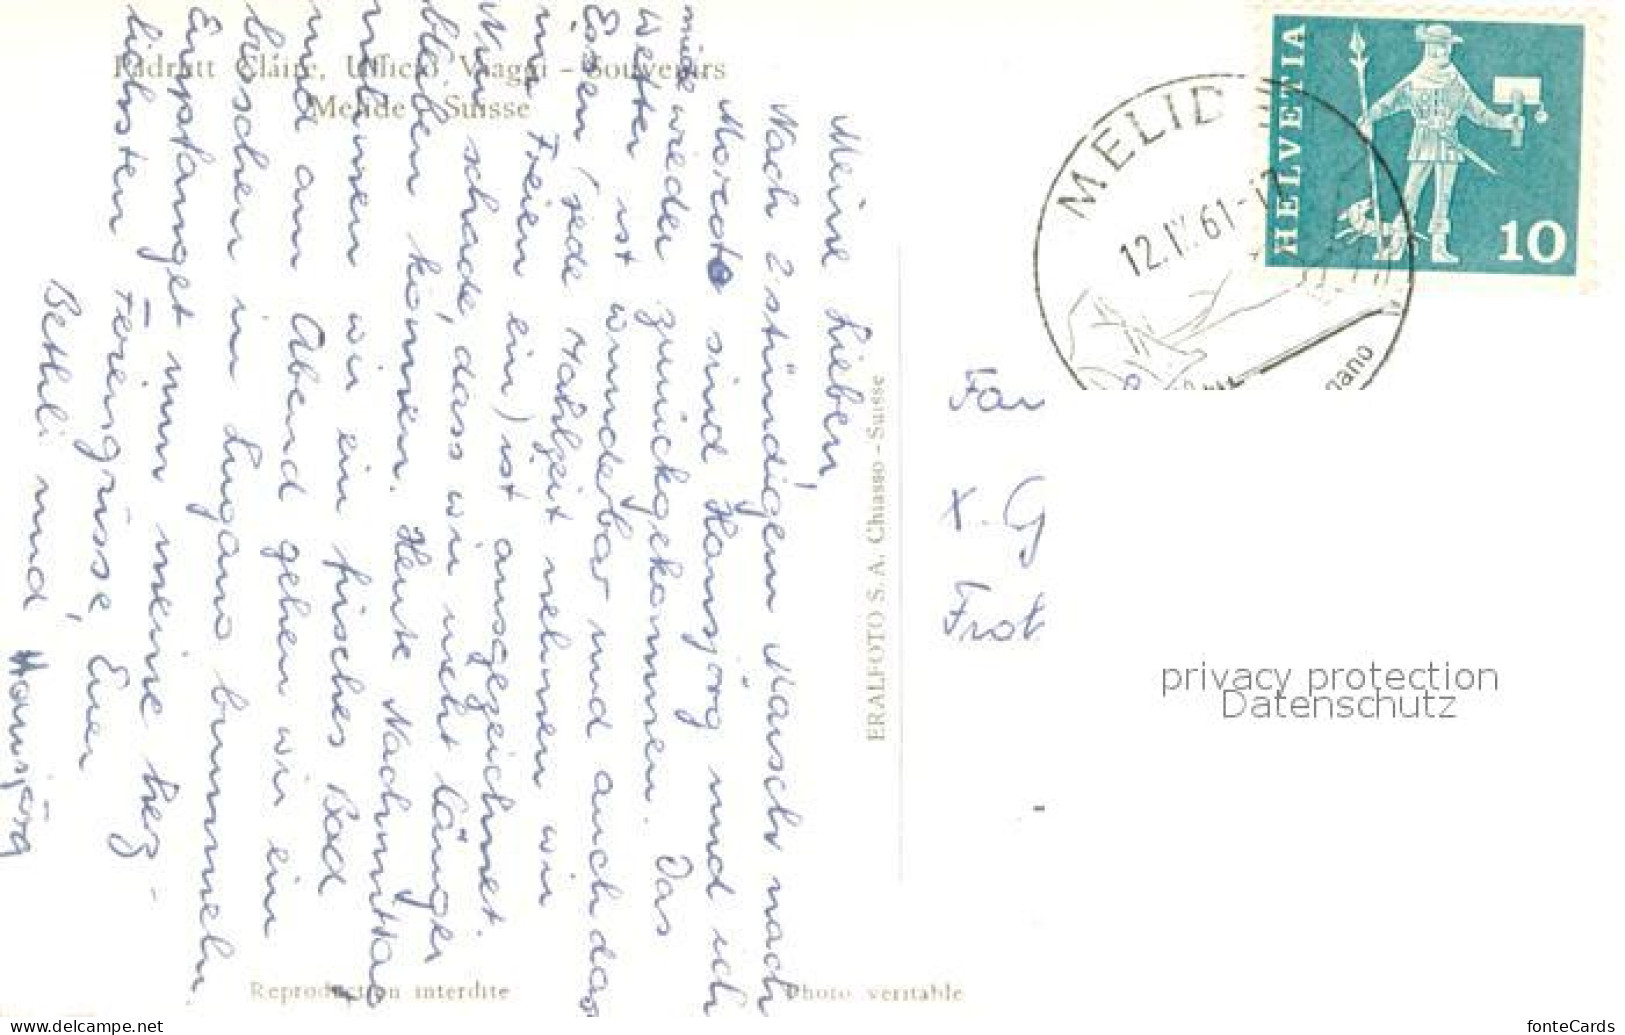 Padrutt Claire, Ufficio Viaggi – Souvenirs
Melide Suisse
Meine Lieben,
Nach 2 stündigem Marsch nach
Morcote sind Hansjörg und ich
müde wieder zurückgekommen. Das
Wetter ist wunderbar und auch das
Essen (jede Mahlzeit nehmen wir
im Freien ein) ist ausgezeichnet.
Nur schade, dass wir nicht länger
bleiben können. Heute Nachmittag
nehmen wir ein frisches Bad
und am Abend gehen wir ein
bisschen in Lugano bummeln.
Empfanget nun meine herz-
lichsten Feriengrüsse, Euer
Bethli und Hansjörg
ERALFOTO S.A. Chiasso – Suisse
Reproduction interdite
Photo veritable
MELID
12.IV.61-17
HELVETIA
10
Fam
X. G
Frob
privacy protection
Datenschutz
www.delcampe.net
fonteCards